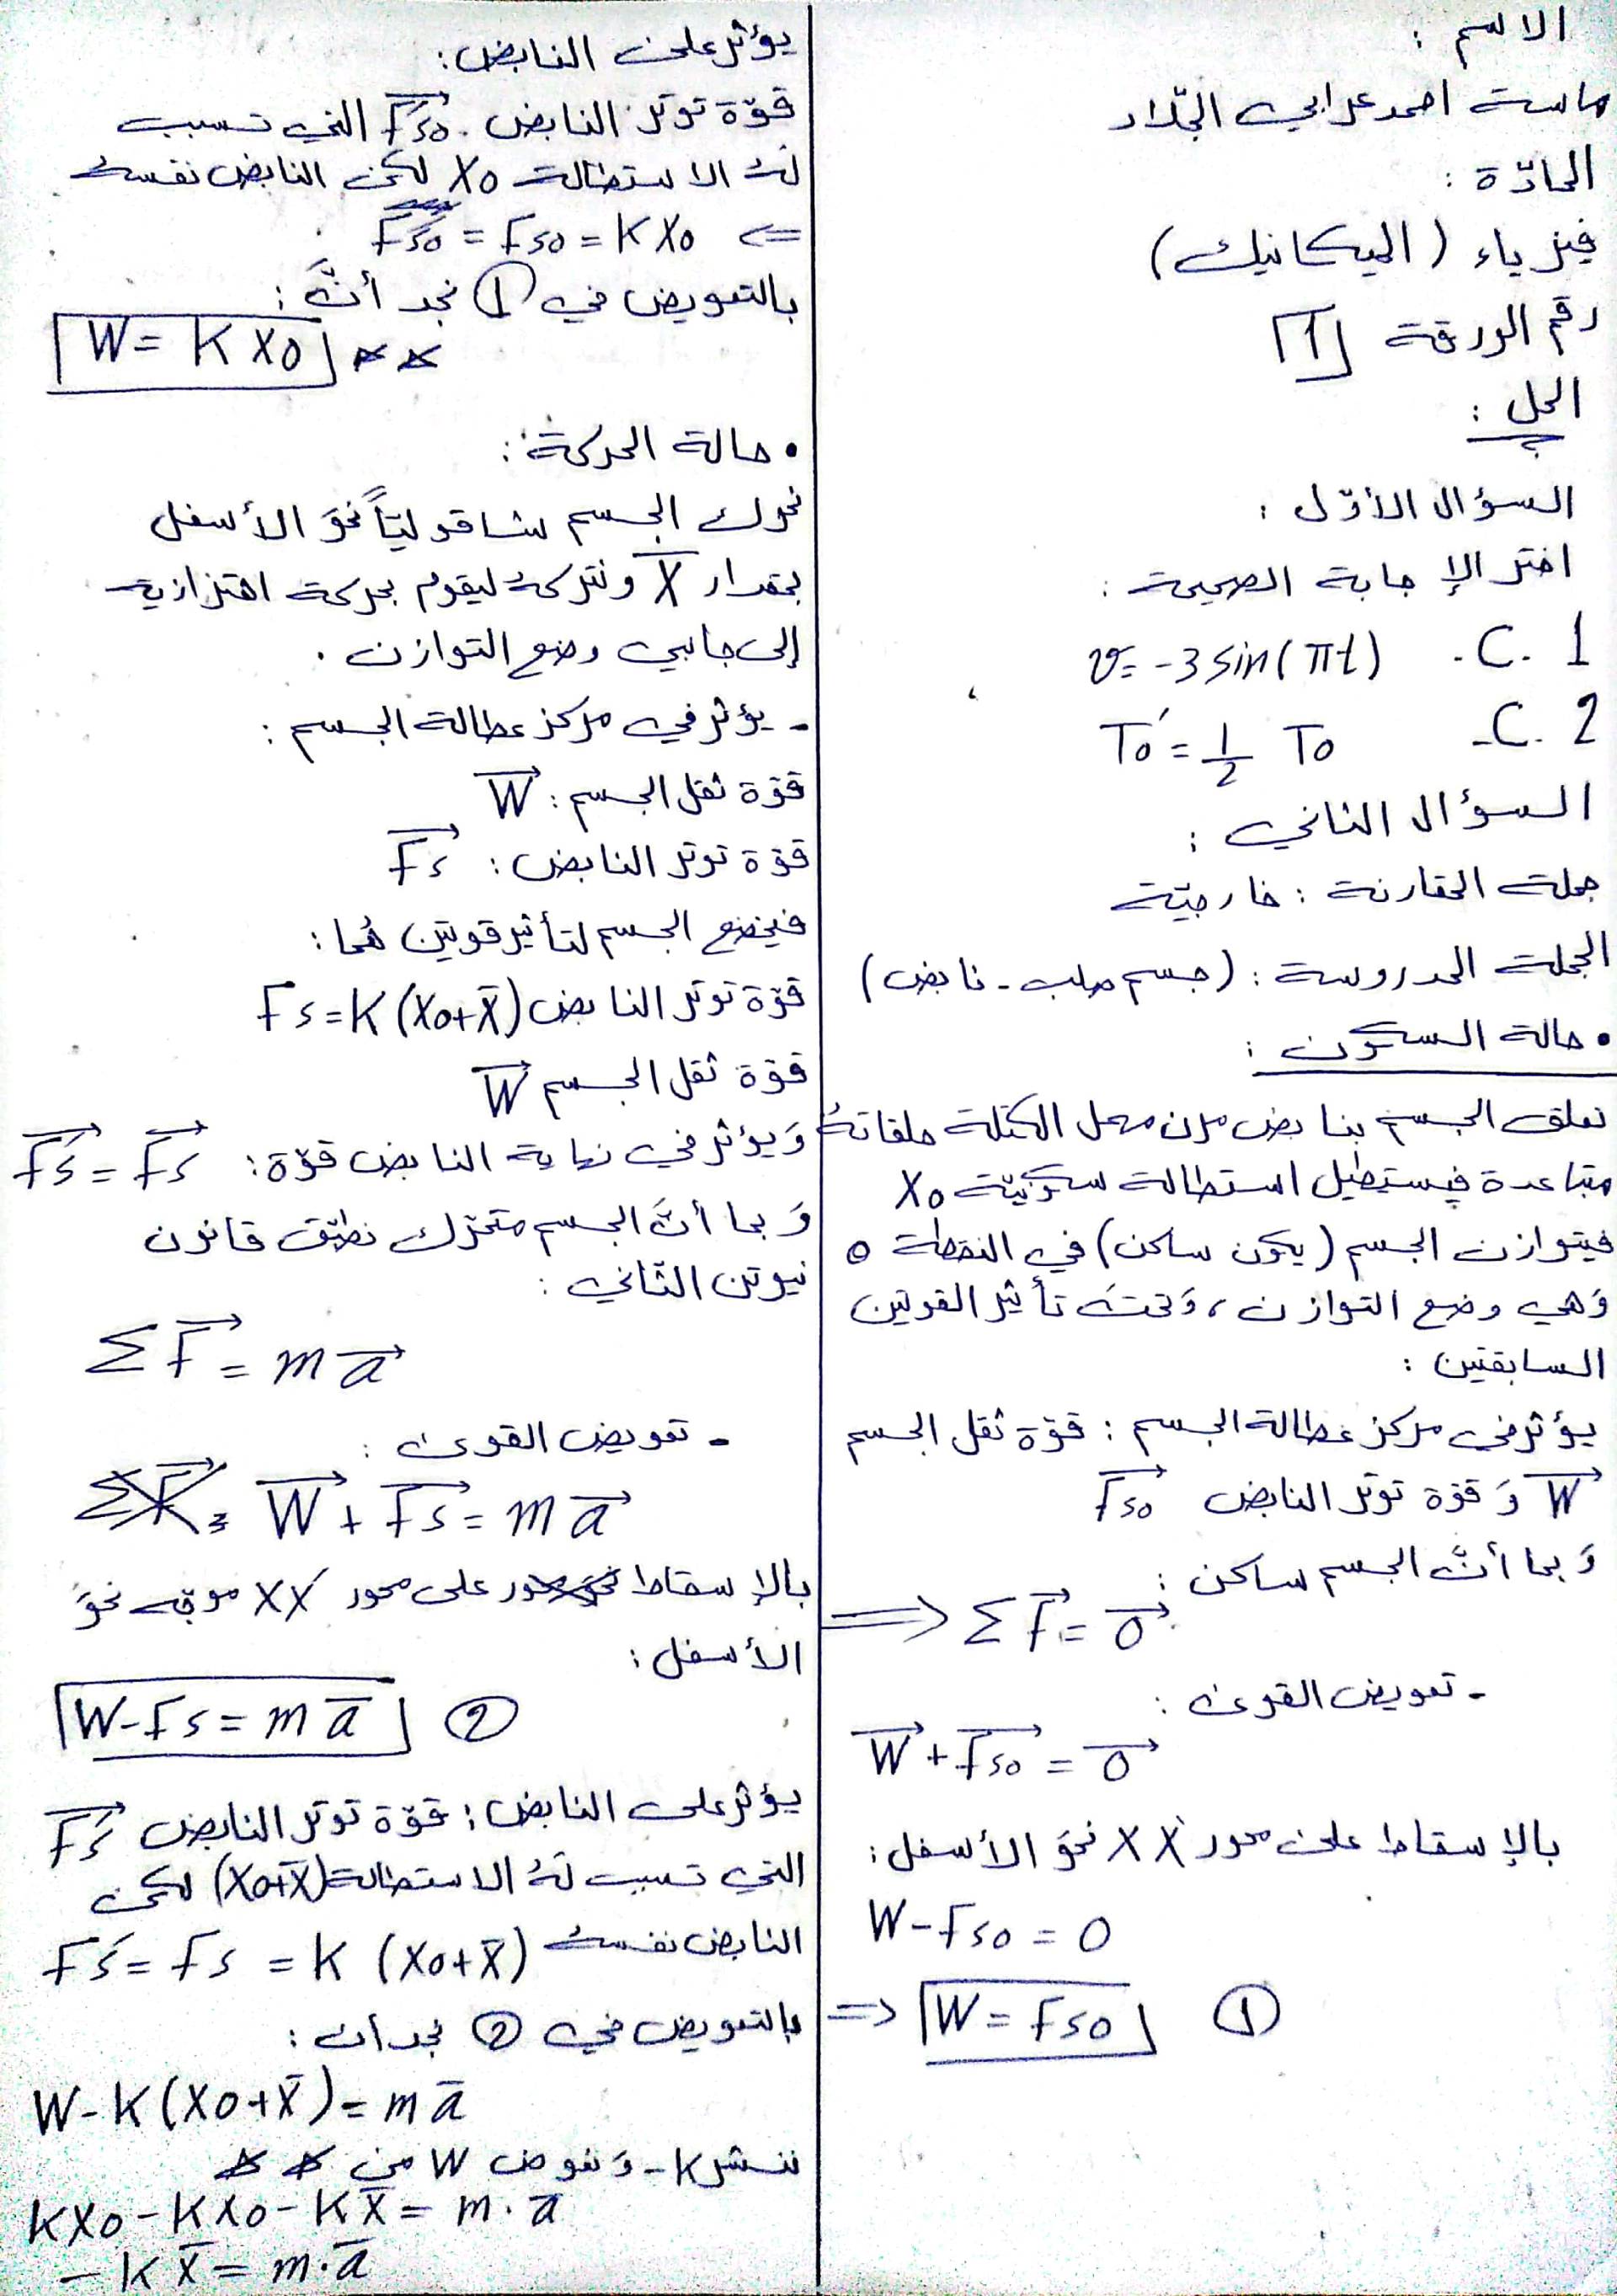 الاسم :
ماسة احمد عرابي الجلاد
المادّة :
فيزياء (الميكانيك)
رقم الورقة [1]
الحل :
السؤال الأوّل :
اختر الإجابة الصحيحة :
1 .C - v = -3 sin(πt)
2 .C - T₀' = 1/2 T₀
السؤال الثاني :
جملة المقارنة : خارجيّة
الجملة المدروسة : (جسم صلب - نابض)
• حالة السكون :
نعلق الجسم بنابض مرن مهمل الكتلة حلقاتهُ
متباعدة فيستطيل استطالة سكونيّة X₀
فيتوازن الجسم (يكون ساكن) في النقطة o
وَهي وضع التوازن ، وَتحتَ تأثير القوتين
السابقتين :
يؤثر في مركز عطالة الجسم : قوّة ثقل الجسم
W⃗ وَ قوّة توتّر النابض F⃗s₀
وَ بما أنَّ الجسم ساكن :
ΣF⃗ = 0⃗ <=
- تعويض القوى :
W⃗ + F⃗s₀ = 0⃗
بالإسقاط على محور x'x نحوَ الأسفل :
W - Fs₀ = 0
=> W = Fs₀ ①
يؤثر على النابض :
قوّة توتّر النابض F⃗'s₀ التي تسبب
لهُ الاستطالة X₀ لكن النابض نفسهُ
<= F's₀ = Fs₀ = K X₀
بالتعويض في ① نجد أنَّ :
W = K X₀ **
• حالة الحركة :
نحرك الجسم شاقوليّاً نحوَ الأسفل
بمقدار x̄ ونتركهُ ليقوم بحركة اهتزازية
إلى جانبي وضع التوازن .
- يؤثر في مركز عطالة الجسم :
قوّة ثقل الجسم : W⃗
قوّة توتّر النابض : F⃗s
فيخضع الجسم لتأثير قوتين هُما :
قوّة توتّر النابض Fs = K (X₀ + x̄)
قوّة ثقل الجسم W⃗
وَ يؤثر في نهاية النابض قوّة : F⃗'s = F⃗s
وَ بما أنَّ الجسم متحرّك نطبّق قانون
نيوتن الثّاني :
ΣF⃗ = m a⃗
- تعويض القوى :
W⃗ + F⃗s = m a⃗
بالإسقاط على محور x'x موجّه نحوَ
الأسفل :
W - Fs = m ā ②
يؤثر على النابض : قوّة توتّر النابض F⃗'s
التي تسبب لهُ الاستطالة (X₀ + x̄) لكن
النابض نفسهُ F's = Fs = K (X₀ + x̄)
بالتعويض في ② نجد أن :
W - K (X₀ + x̄) = m ā
ننشر K- وَ نعوض W من **
K X₀ - K X₀ - K x̄ = m . ā
- K x̄ = m . ā